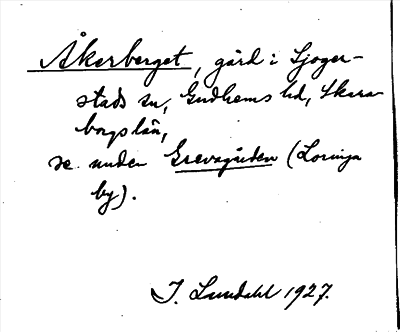 Åkerberget, gård i Sjoger-
stads sn, Gudhems hd, Skara-
borgs län,
se under Grevagården (Loringa
by).
I. Lundahl 1927.